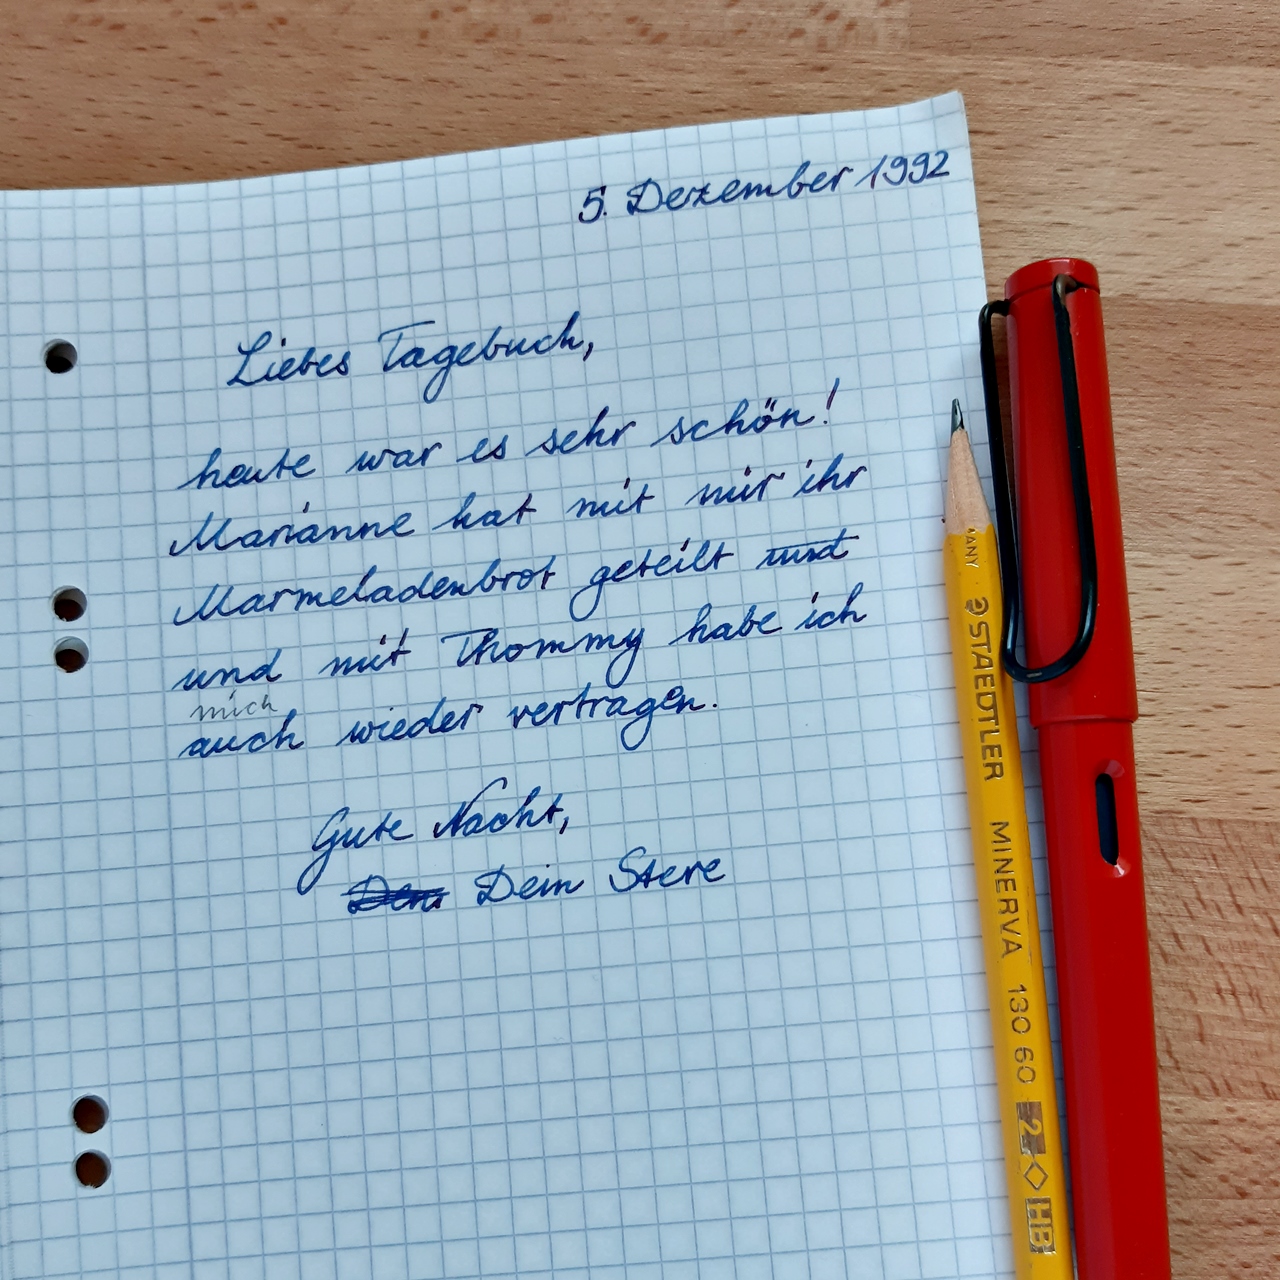 5. Dezember 1992
Liebes Tagebuch,
heute war es sehr schön!
Marianne hat mit mir ihr
Marmeladenbrot geteilt und
und mit Thommy habe ich
mich
auch wieder vertragen.
Gute Nacht,
Dein Steve
MANY STAEDTLER MINERVA 130 60 2 HB